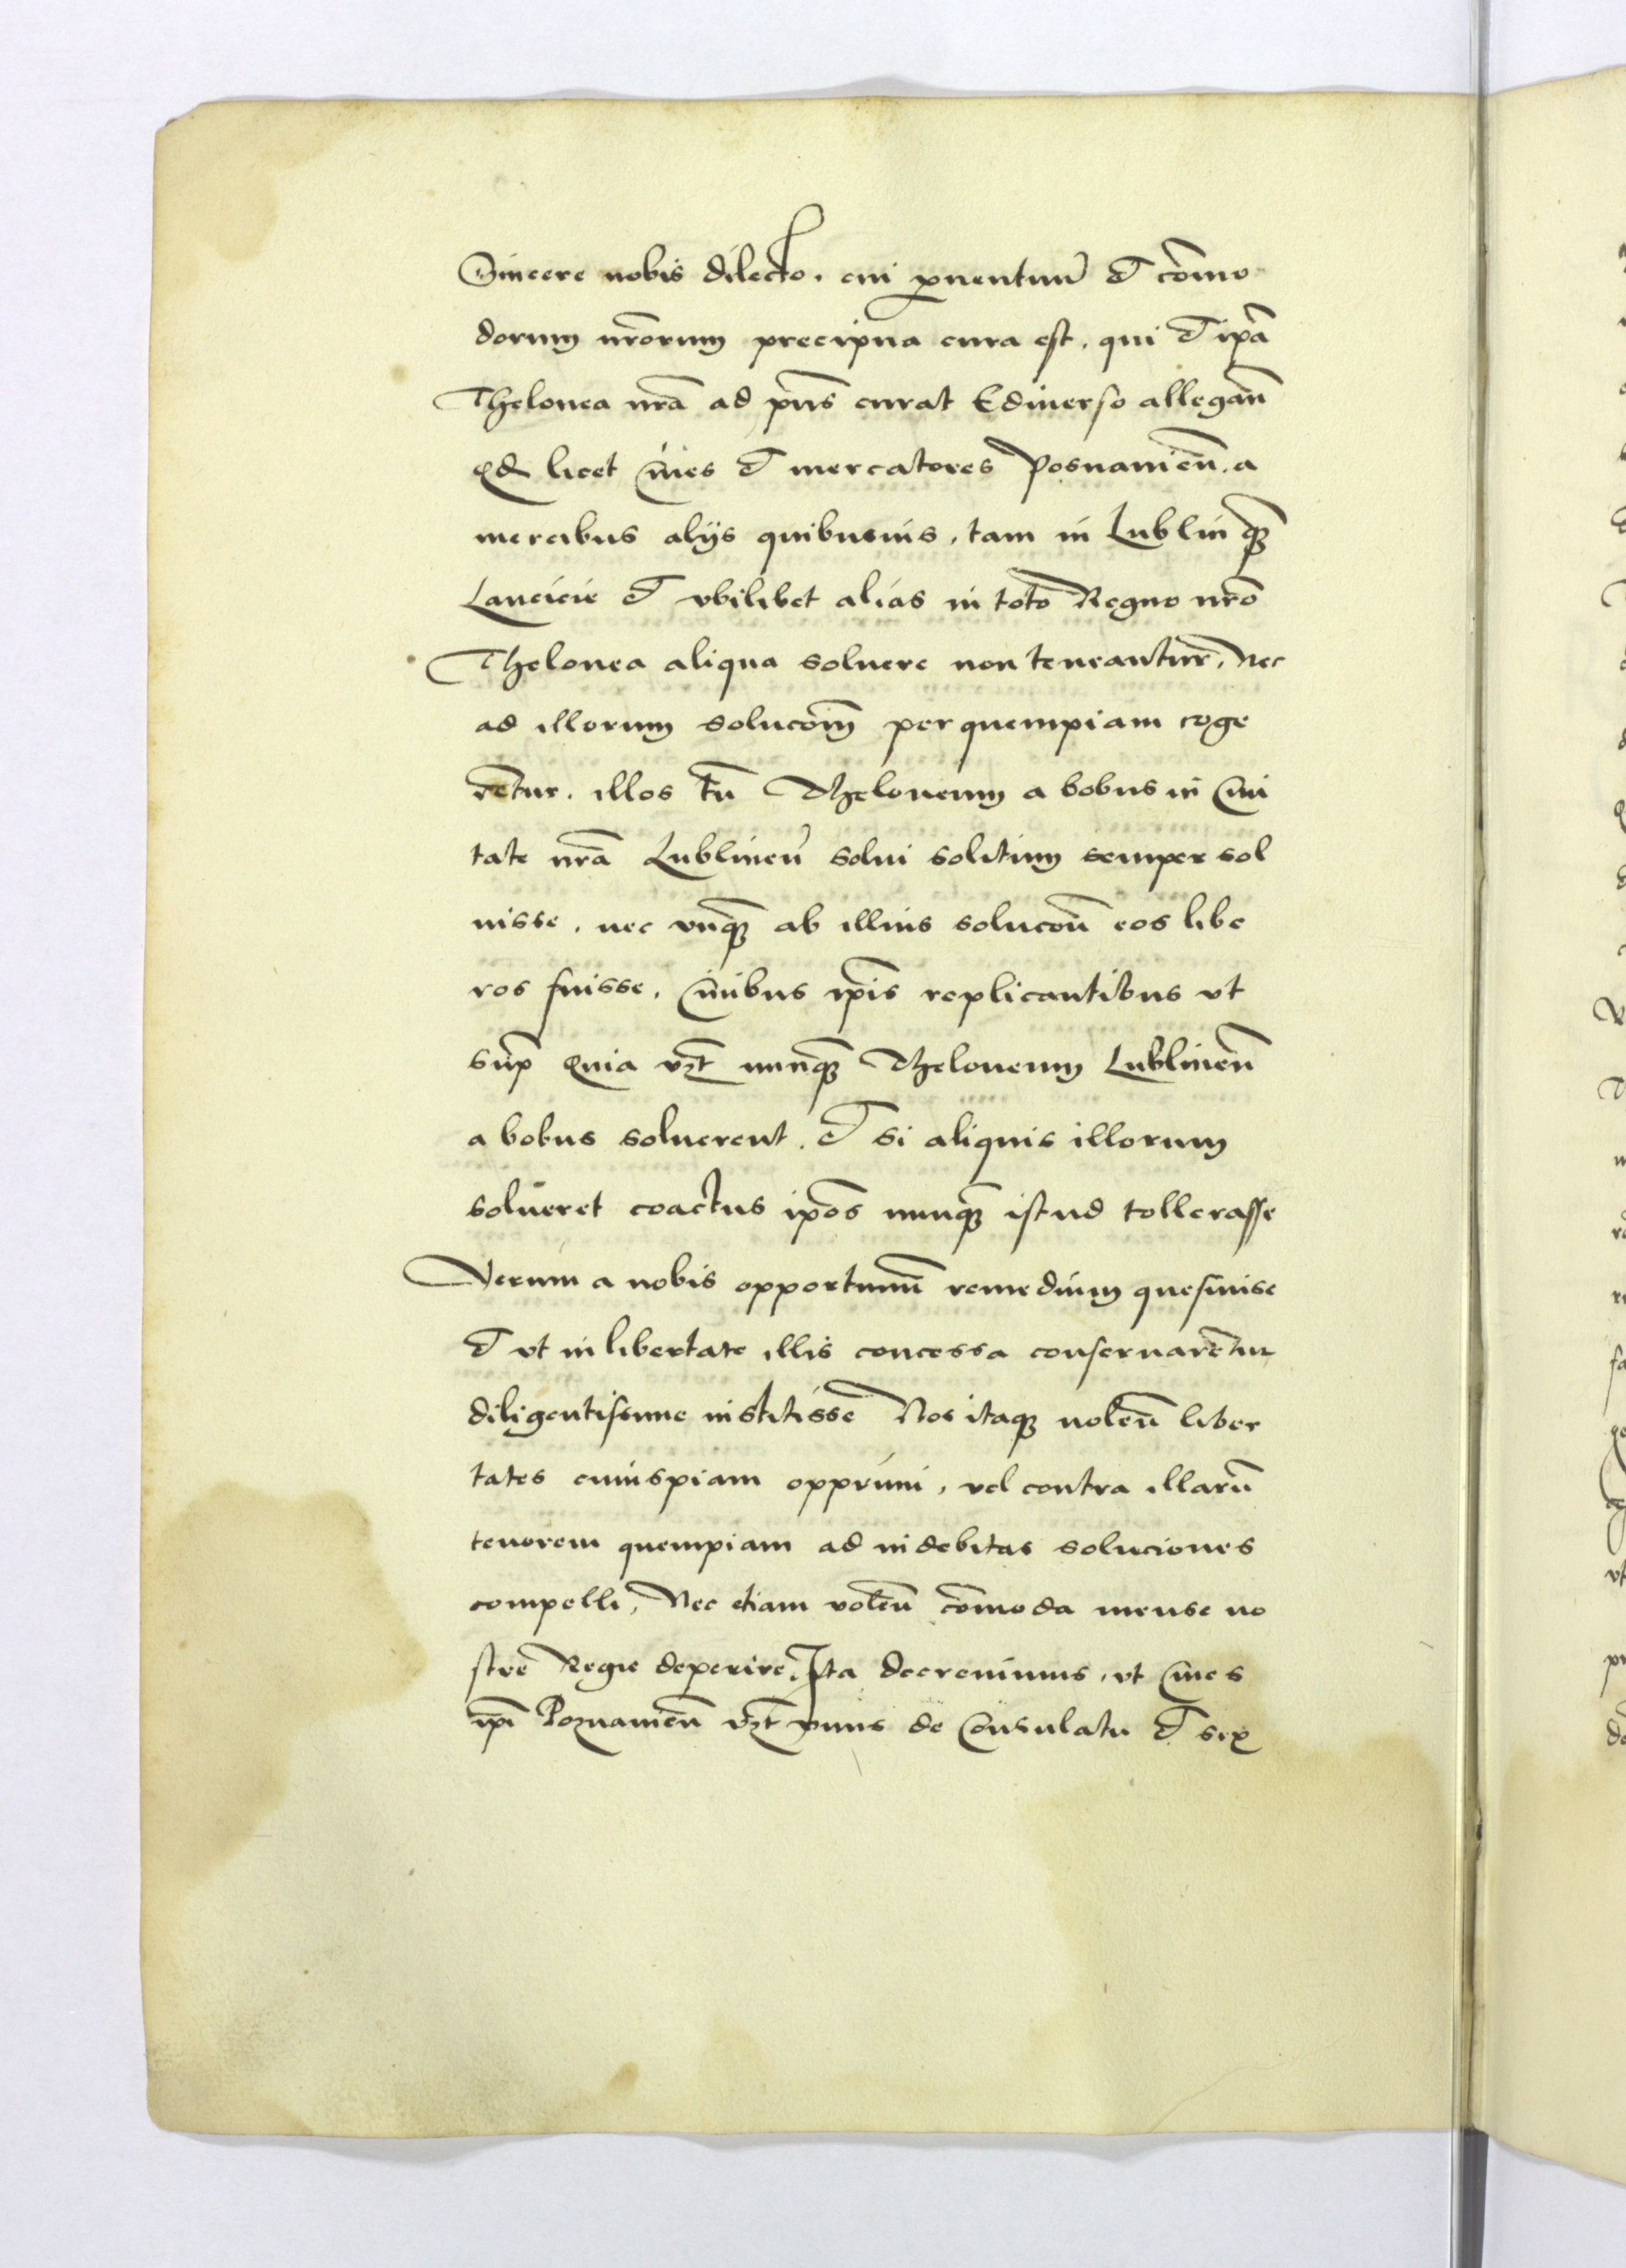 Sincere nobis dilecto. cui ꝓuentuũ et cõmo
dorum nr̃orum precipua cura est. qui et ip̃a
Thelonea nr̃a ad pñs curat Ediuerso allegañ
qd licet Ciũes et mercatores Posnanieñ. a
mercibus alijs quibusuis, tam in Lublin q̃ꝫ
Lancicie et vbilibet alias in toto Regno nr̃o
Thelonea aliqua soluere non teneantur, Nec
ad illorum solucõm per quempiam coge
rẽtur. illos tñ Theloneum a bobus in Ciui
tate nr̃a Lublineñ solui solitum semper sol
uisse, nec vnq̃ꝫ ab illius solucõn eos libe
ros fuisse. Ciuibus ip̃is replicantibus vt
sup̃ Quia vꝫt nunq̃ꝫ Theloneum Lublineñ
a bobus soluerent. et si aliquis illorum
solueret coactus ip̃os nunq̃ꝫ istud tollerasse
Verum a nobis opportunũ remedium quesiuise
et vt in libertate illis concessa conseruarẽtur
diligentissime institisse Nos itaqꝫ noleñ liber
tates cuiuspiam opprimi, vel contra illarũ
tenorem quempiam ad indebitas soluciones
compelli, Nec etiam voleñ cõmoda mense no
stre Regie deperire, Ita decreuimus, vt Ciues
ip̃i Poznanieñ vꝫt vnus de Consulatu et sex